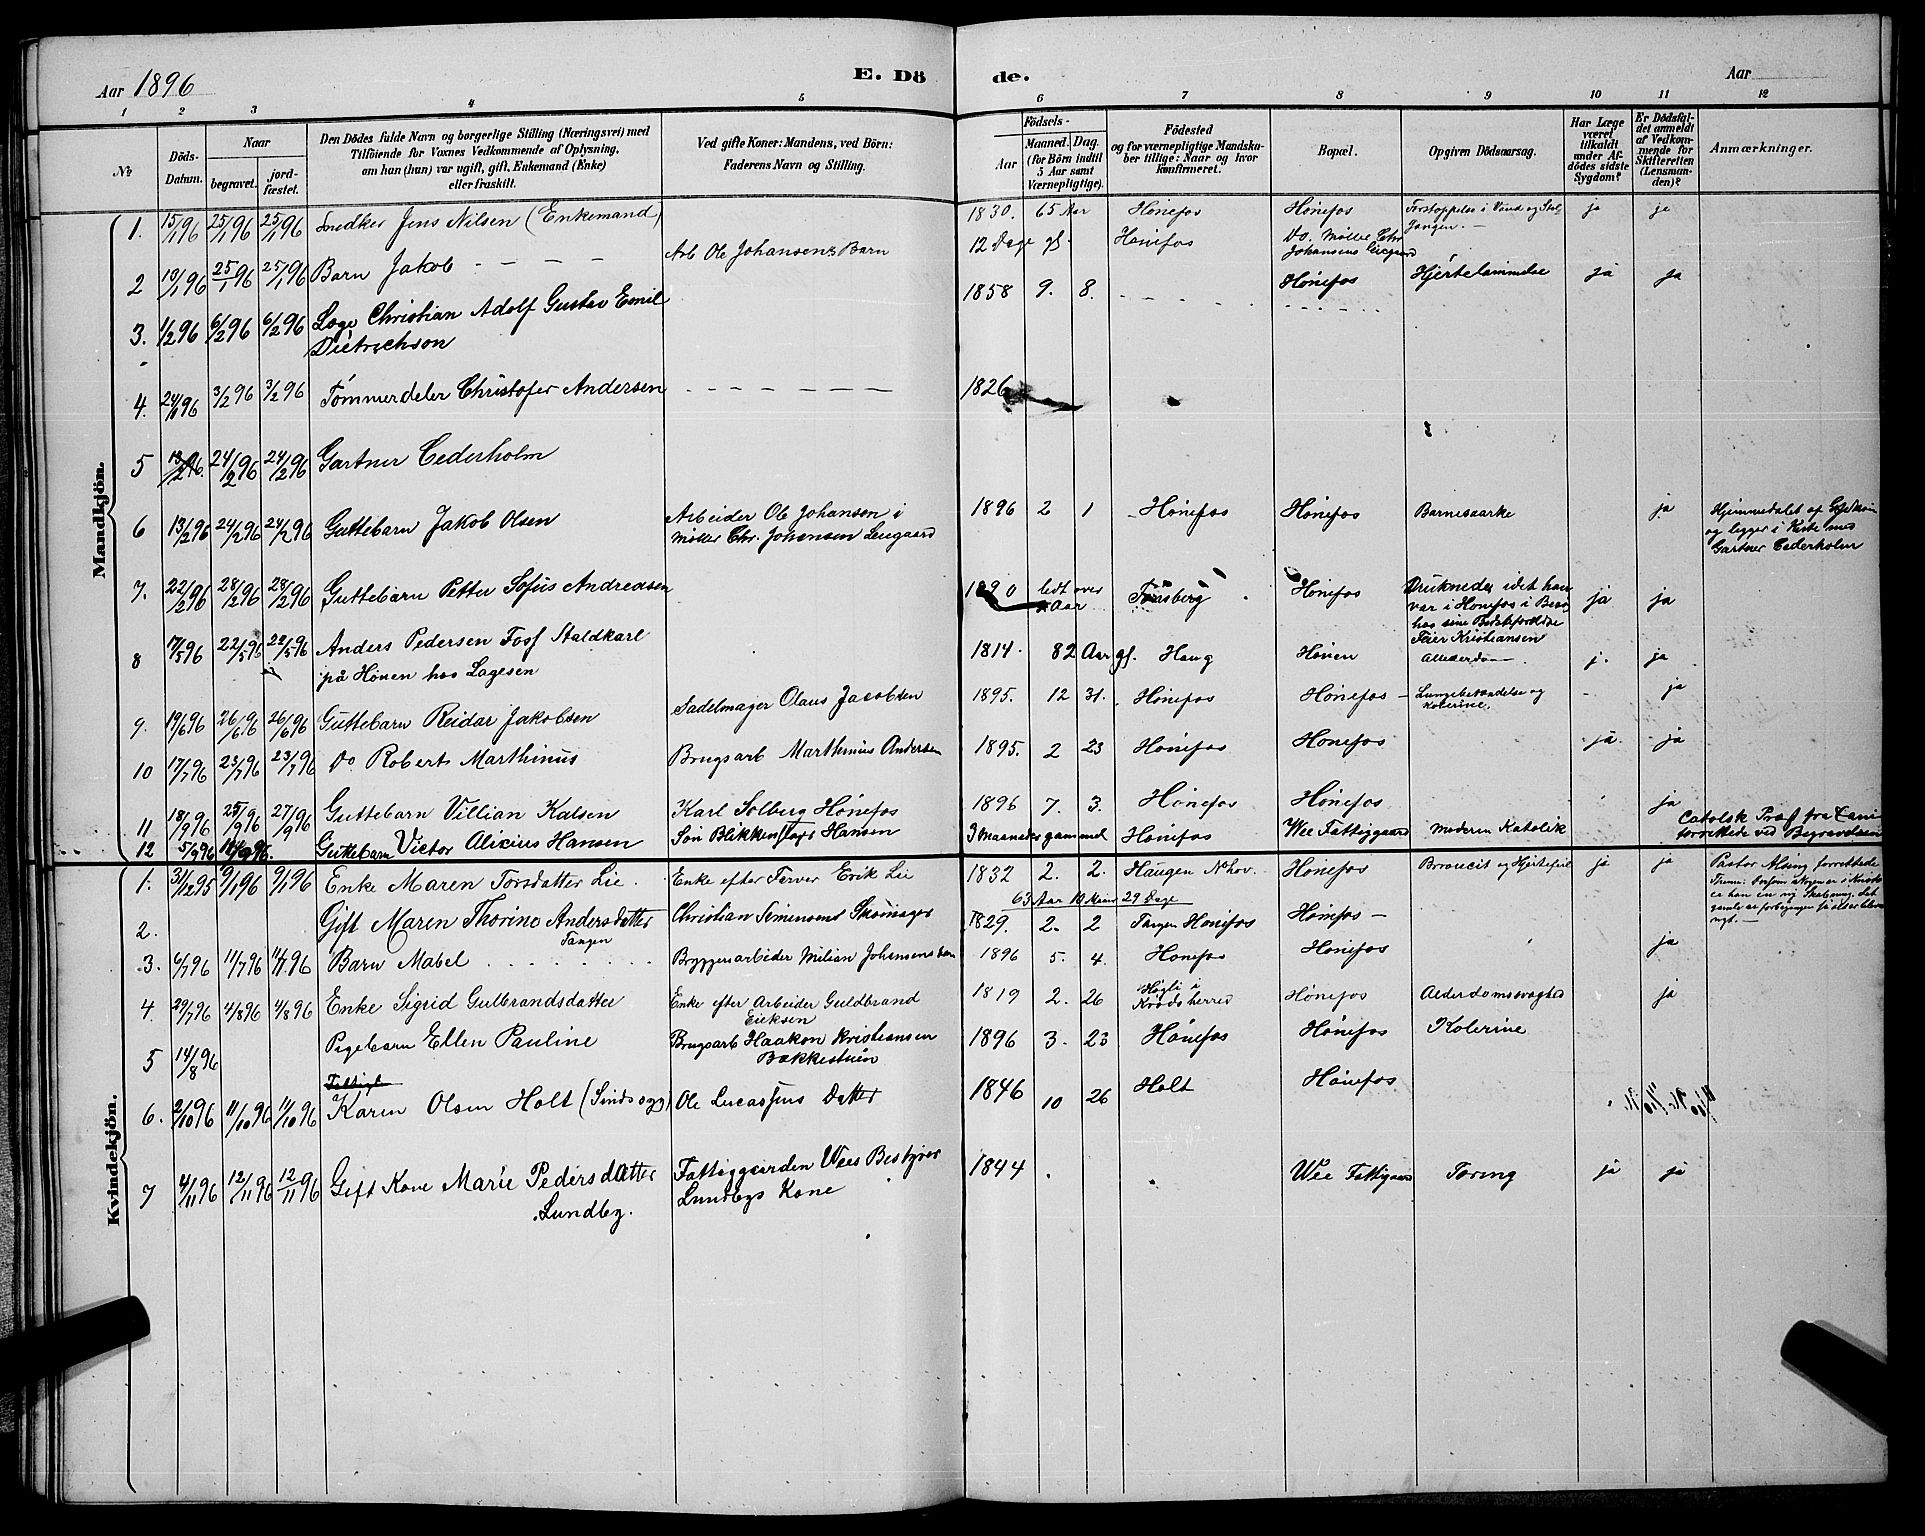 Aar 1896
E. Dö
de.
Aar
1 2 3 4 5 6 7 8 9 10 11 12
No
Döds-
Datum.
Naar
begravet.
jord-
fæstet.
Den Dödes fulde Navn og borgerlige Stilling (Næringsvei) med
Tilföiende for Voxnes Vedkommende af Oplysning,
om han (hun) var ugift, gift, Enkemand (Enke)
eller fraskilt.
Ved gifte Koner: Mandens, ved Börn:
Faderens Navn og Stilling.
Födsels-
Aar
Maaned. Dag.
(for Börn indtil
5 Aar samt
Værnepligtige).
Födested
og for værnepligtige Mandska-
ber tillige: Naar og hvor
konfirmeret.
Bopæl.
Opgiven Dödsaarsag.
Har Læge
været
tilkaldt
under Af-
dödes sidste
Sygdom?
Er Dödsfal-
det anmeldt
af Vedkom-
mende for
Skifteretten
(Lensman-
den)?
Anmærkninger.
Mandkjön.
1. 15/1 96 25/1 96 25/1 96 Snedker Jens Nilsen (Enkemand) 1830. 65 Aar Hönefos Hönefos Forstoppelse i ja ja
2 19/1 96 25/1 96 25/1 96 Barn Jakob Arb Ole Johansens Barn 12 Dage gl. Hönefos Do. Møller Chr
Johansens
3. 1/2 96 6/2 96 6/2 96 Læge Christian Adolf Gustav Emil 1858 9. 8. Hönefos Hjertelammelse ja ja
Dietrichson
4. 24/1 96 3/2 96 3/2 96 Tömmerdeler Christofer Andersen 1826
5 13/2 96. 24/2 96 24/2 96 Gartner Cederholm
6 13/2 96 24/2 96 24/2 96 Guttebarn Jakob Olsen Arbeider Ole Johansen i 1896 2 1 Hönefos Hönefos ja Hjemmedøbt af
Møller Chr. Johansen og ligger i Kiste med
Gartner Cederholm
7. 22/2 96 28/2 96 28/2 96 Guttebarn Petter Sofus Andreasen 1890 lidt over Hönefos Druknede idet han ja ja
Aar var i Hönefos i Besøg
hos sine Bedsteforeldre
Feier Kristiansen
8 17/5 96 22/5 96 22/5 96 Anders Pedersen Foss Staldkarl 1814. 82 Aar gl. Haug Hönen Alderdom j. ja
på Hönen hos Lagesen
9. 19/6 96 26/6 96 26/6 96 Guttebarn Reidar Jakobsen Sadelmager Olaus Jacobsen 1895. 12 31. Hönefos Hönefos Lungebetændelse og ja
Kolerine.
10 17/7 96 23/7 96 23/7 96 Do Robert Marthinus Brugsarb Marthinius Andersen 1895. 2 23 Hönefos Hönefos ja. ja
11 18/9 96 25/9 96 27/9 96 Guttebarn Villian Kalsen Karl Solberg Hönefos 1896 7. 3. Hönefos Hönefos ja
12 5/9 96 Guttebarn Victor Alicius Hansen Sön Blikkenslager Hansen 3 Maaneder gammel Hönefos Wee Fattiggaard Moderen Katolik Catolsk Præst fra
forrettede ved Begravelsen
Kvindekjön.
1. 31/12 95 9/1 96 9/1 96 Enke Maren Torsdatter Lie. Enke efter Farver Erik Lie 1832 2. 2. Haugen Hönefos ja ja Pastor Alsing forrettede
63 Aar 10 Mdr 29 Dage
2. Gift Maren Thorine Andersdatter Christian Simensens Skomager 1829. 2. 2 Tangen Hönefos Hönefos
Tangen
3. 6/7 96 11/7 96 11/7 96 Barn Mabel Bryggeriarbeider Milian Johansens 1896 5. 4. Hönefos Hönefos ja
4. 29/7 96 4/8 96 4/8 96 Enke Sigrid Gulbrandsdatter Enke efter Arbeider Guldbrand 1819 2. 26 Högli i Hönefos Alderdomssvaghed ja
Eriksen Krødsherred
5 14/8 96 Pigebarn Ellen Pauline Brugsarb Haakon Kristiansen 1896 3. 23 Hönefos Hönefos Kolerine
Bakkestuen
6. 2/10 96 11/10 96 11/10 96 Karen Olsen Holt (Sindssyg) Ole Lucassens Datter 1846 10 26 Holt Hönefos
7 4/11 96 12/11 96 12/11 96 Gift Kone Marie Pedersdatter Fattiggaarden Wees Bestyrer 1844 Wee Fattigaard Tæring ja ja
Lundby. Lundbys Kone